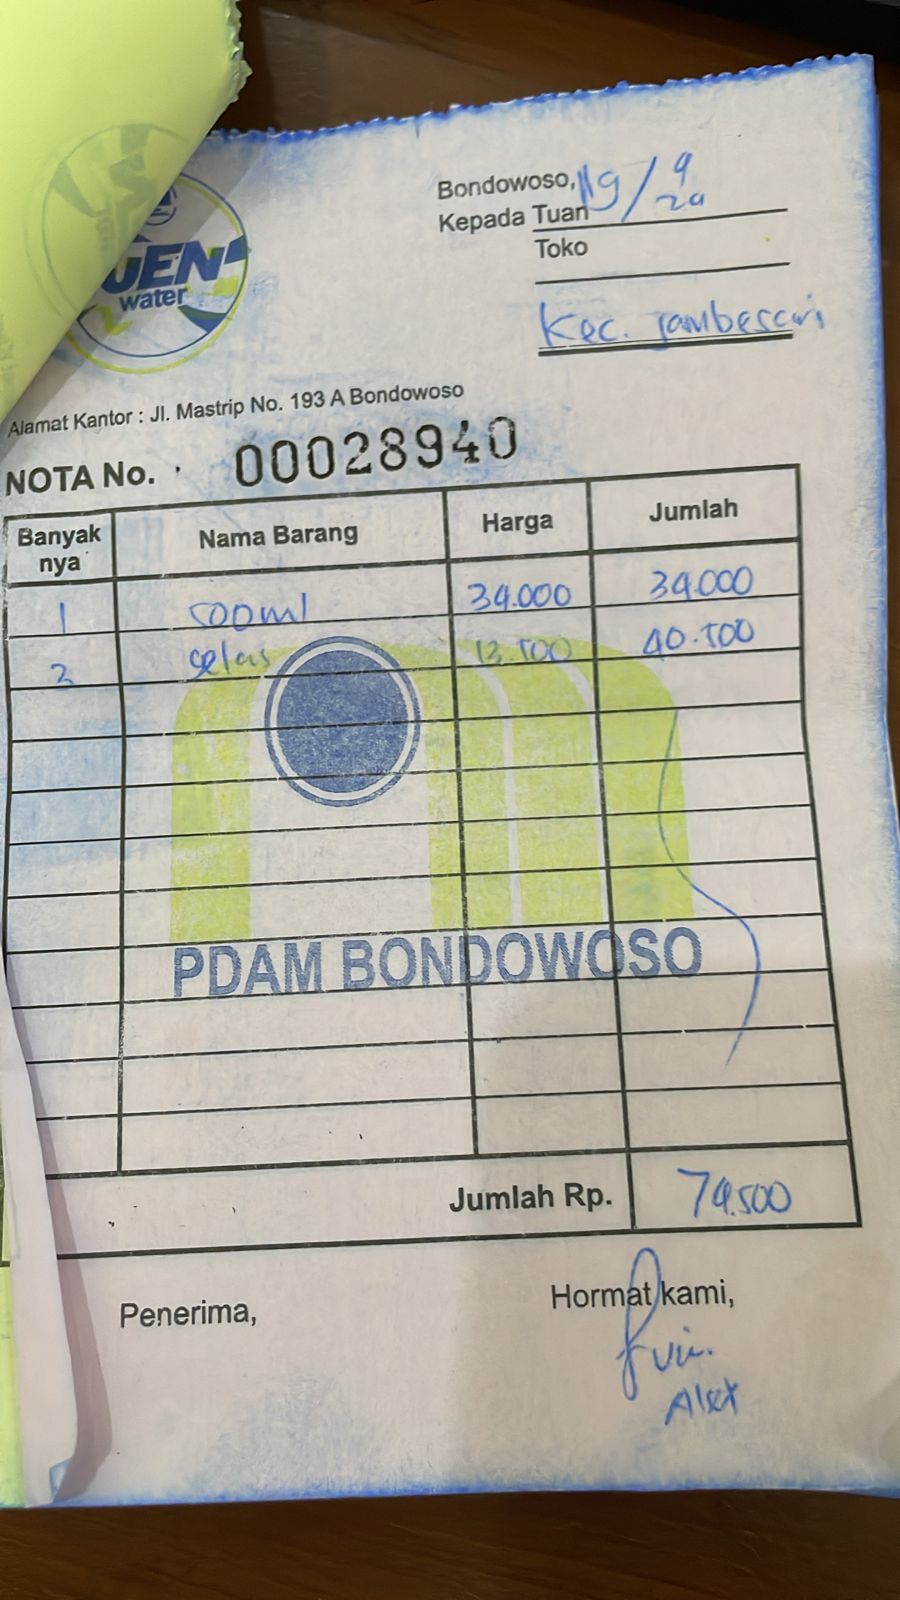 UEN
water
Bondowoso, 19/9
20
Kepada Tuan
Toko
Kec. Jambesari
Alamat Kantor : Jl. Mastrip No. 193 A Bondowoso
NOTA No. 00028940
Banyak nya Nama Barang Harga Jumlah
1 500ml 34.000 34.000
3 gelas 13.500 40.500
PDAM BONDOWOSO
Jumlah Rp. 74.500
Penerima, Hormat kami,
Alex